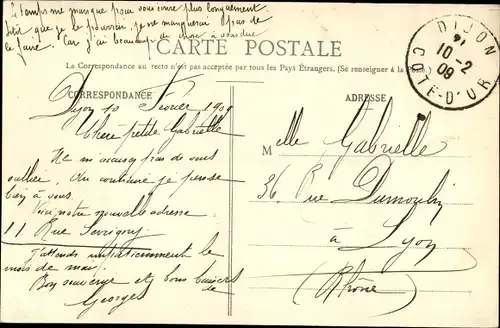 Le temps me manque pour vous écrire plus longuement.
Sitôt que je le pourrai je ne manquerai pas de
le faire. Car j'ai beaucoup de chose à vous dire
CARTE POSTALE
La Correspondance au recto n'est pas acceptée par tous les Pays Étrangers. (Se renseigner à la Poste)
CORRESPONDANCE
Dijon 10 Février 1909
Chère petite Gabrielle
Ne m'accusez pas de vous
oublier. Au contraire je pense
bien à vous.
Voici notre nouvelle adresse
11 Rue Sévigné
J'attends impatiemment le
mois de mai.
Bon souvenir et bons baisers
de
Georges
ADRESSE
Melle Gabrielle
36 Rue Dumoulin
à Lyon
(Rhône)
DIJON
10-2
09
COTE-D'OR